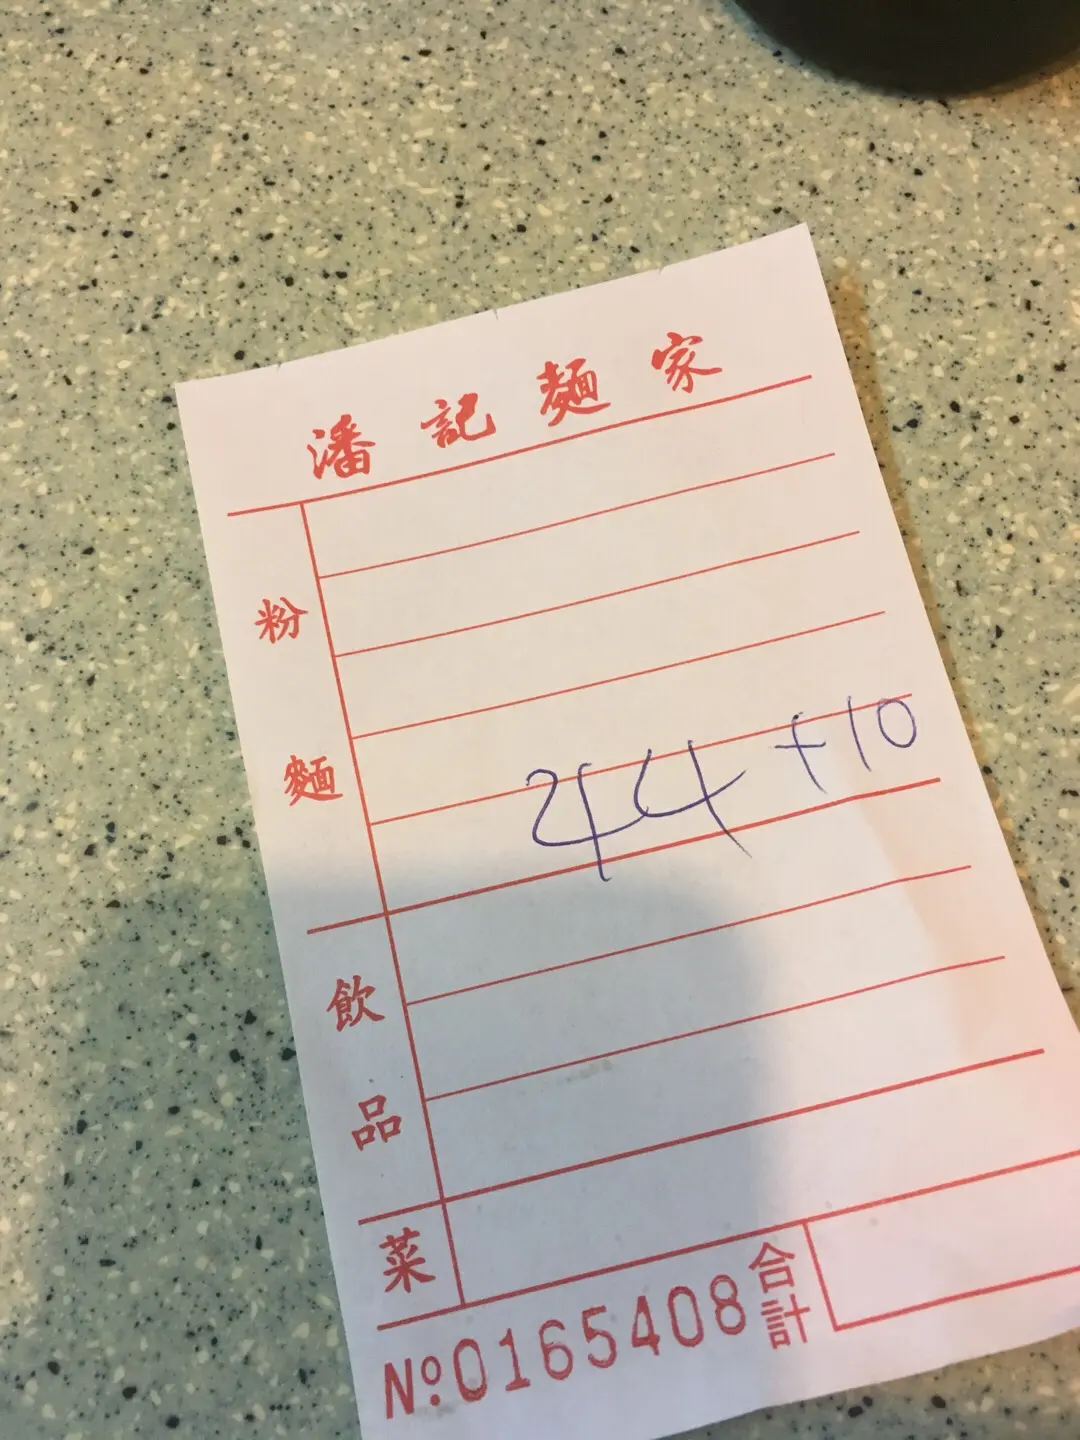 潘記麵家
粉麵
44 +10
飲品
菜
合計
№0165408